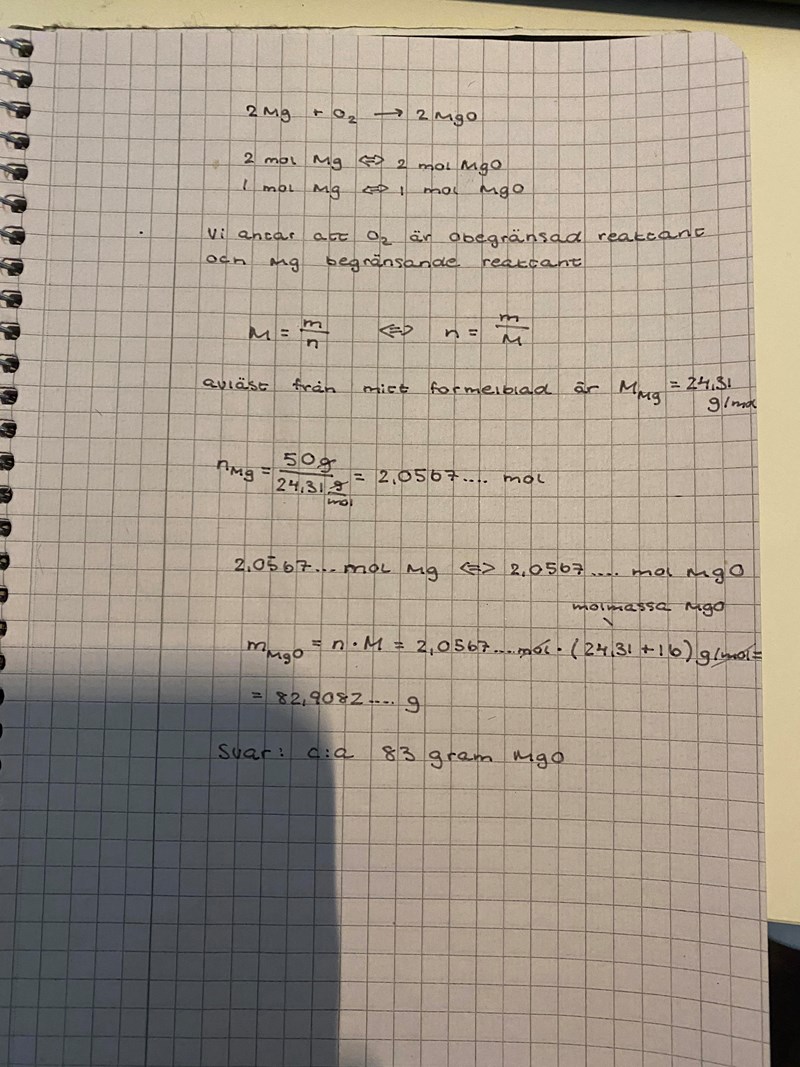 2 Mg + O₂ → 2 MgO
2 mol Mg ⇔ 2 mol MgO
1 mol Mg ⇔ 1 mol MgO
Vi antar att O₂ är obegränsad reaktant
och Mg begränsande reaktant
M = m/n ⇔ n = m/M
avläst från mitt formelblad är M_Mg = 24,31 g/mol
n_Mg = 50 g / 24,31 g/mol = 2,0567.... mol
2,0567... mol Mg ⇔ 2,0567.... mol MgO
molmassa MgO
m_MgO = n · M = 2,0567... mol · (24,31 + 16) g/mol =
= 82,9082.... g
Svar: c:a 83 gram MgO